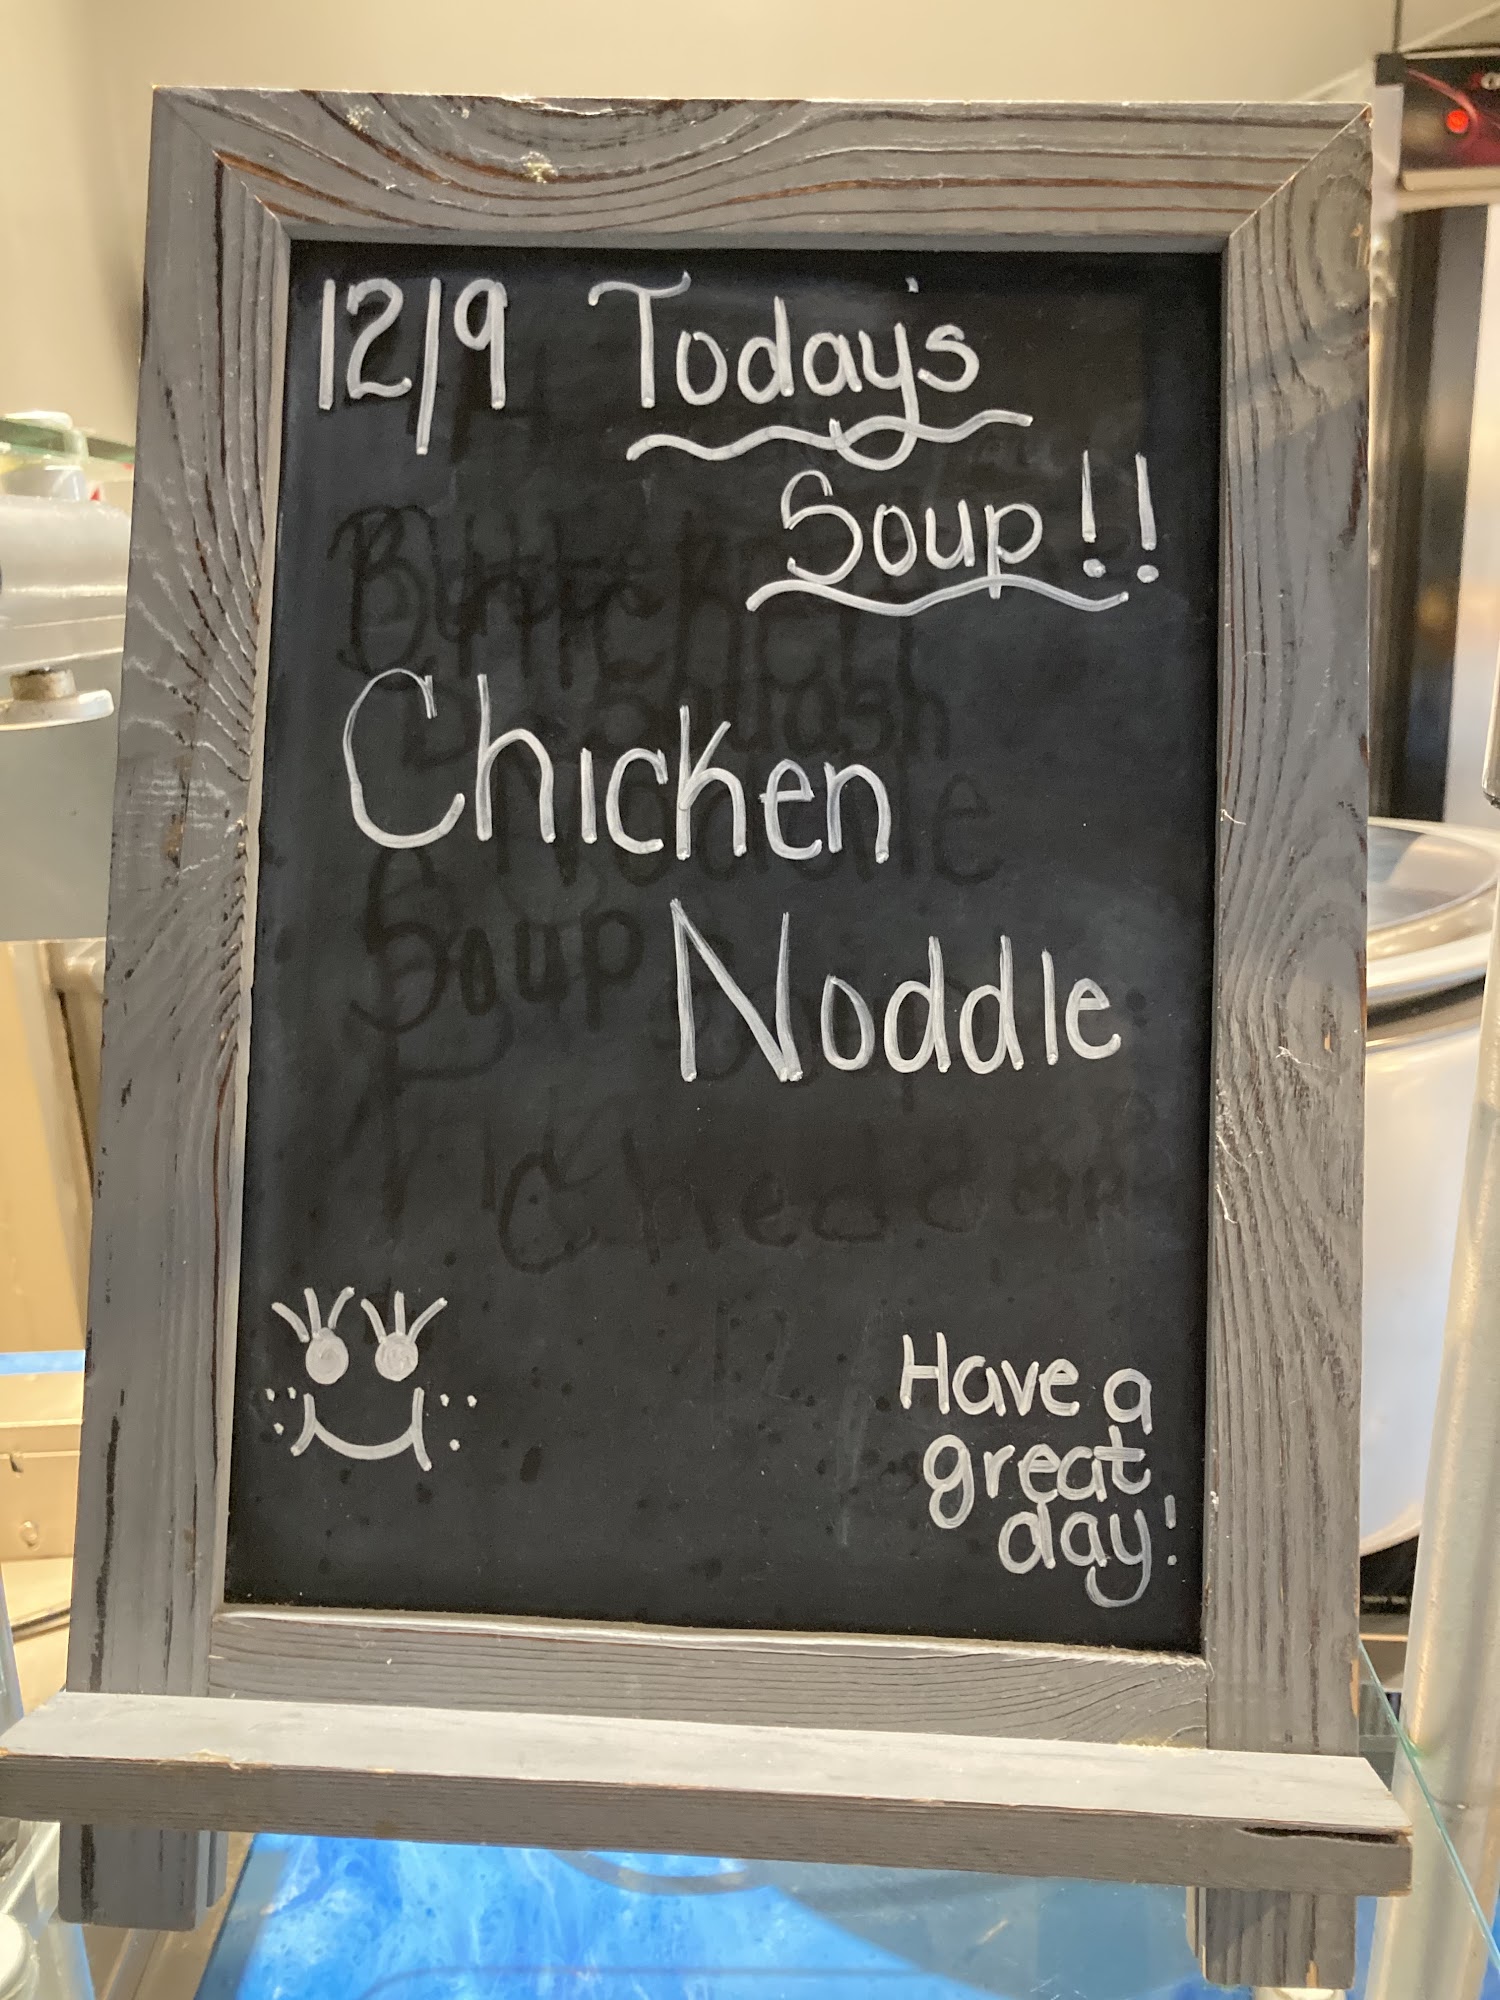 12/9 Today's
Soup!!
Chicken
Noddle
Have a
great
day!